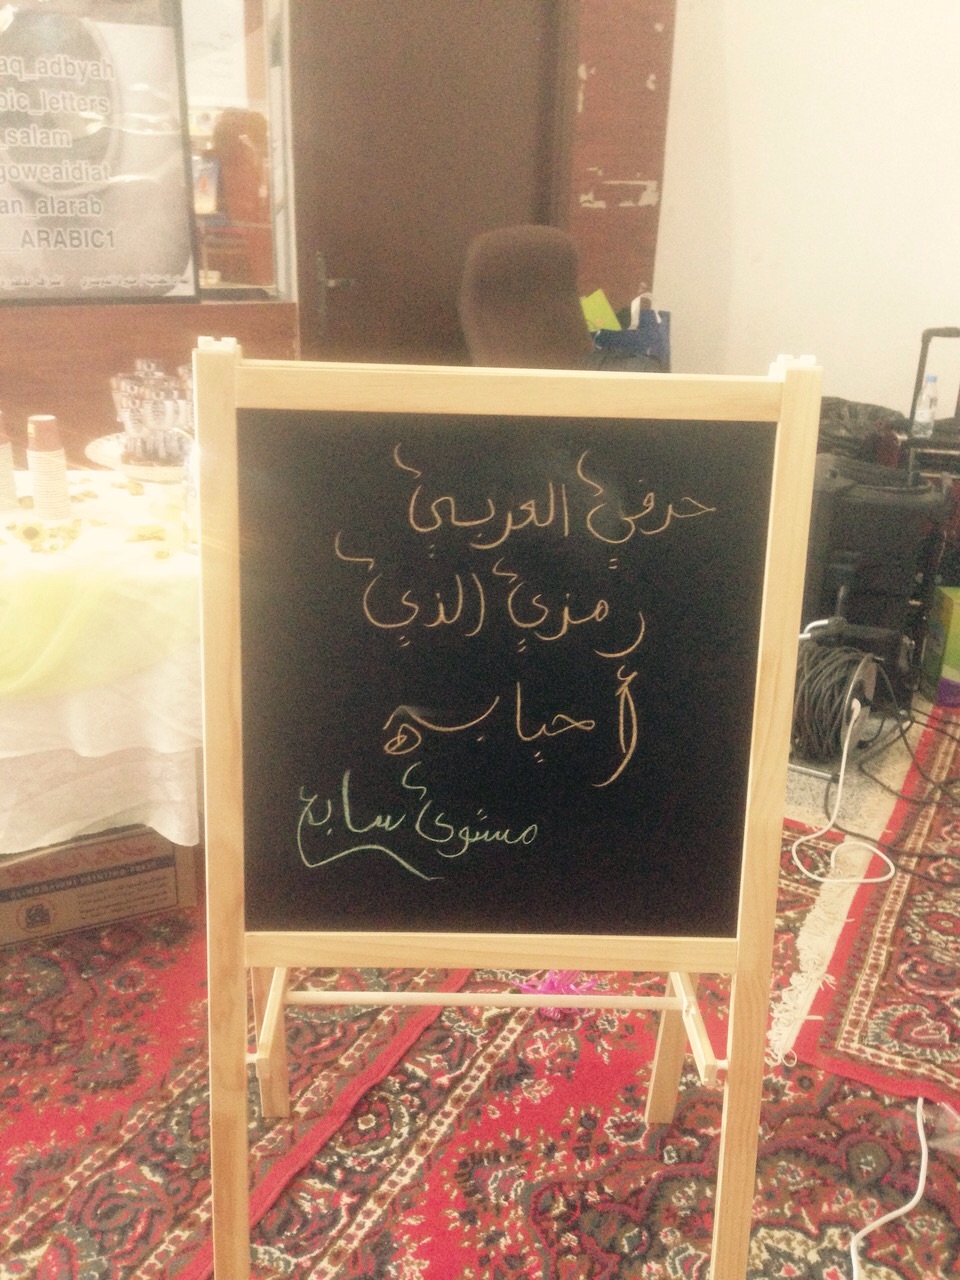 aq_adbyah
bic_letters
_salam
goweaidiat
an_alarab
ARABIC1
حرفي العربي
رمزي الذي
أحيا به
مستوى سابع